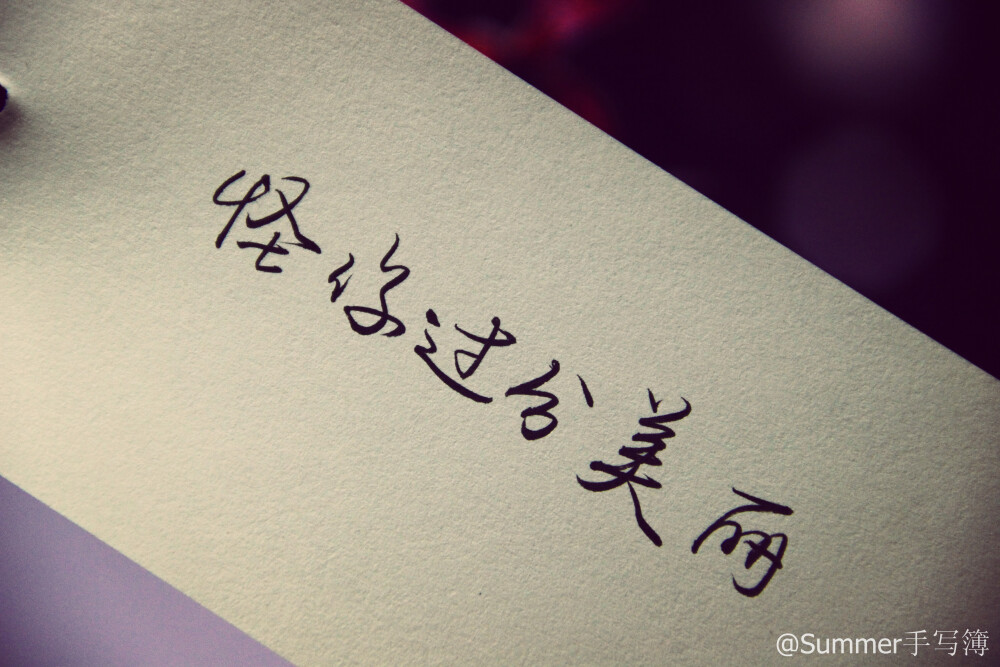 怪你过分美丽
@Summer手写簿